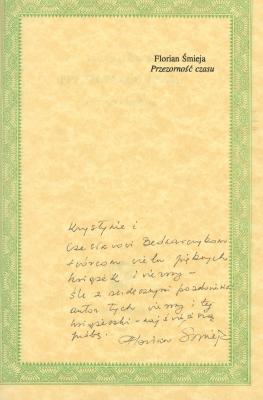 Florian Śmieja
Przezorność czasu
Krystynie i
Czesławowi Bednarczykom
twórcom wielu pięknych
książek i wierny –
śle z serdecznymi pozdrowieniami
autor tych wierszy i tej
książeczki –
Florian Śmieja